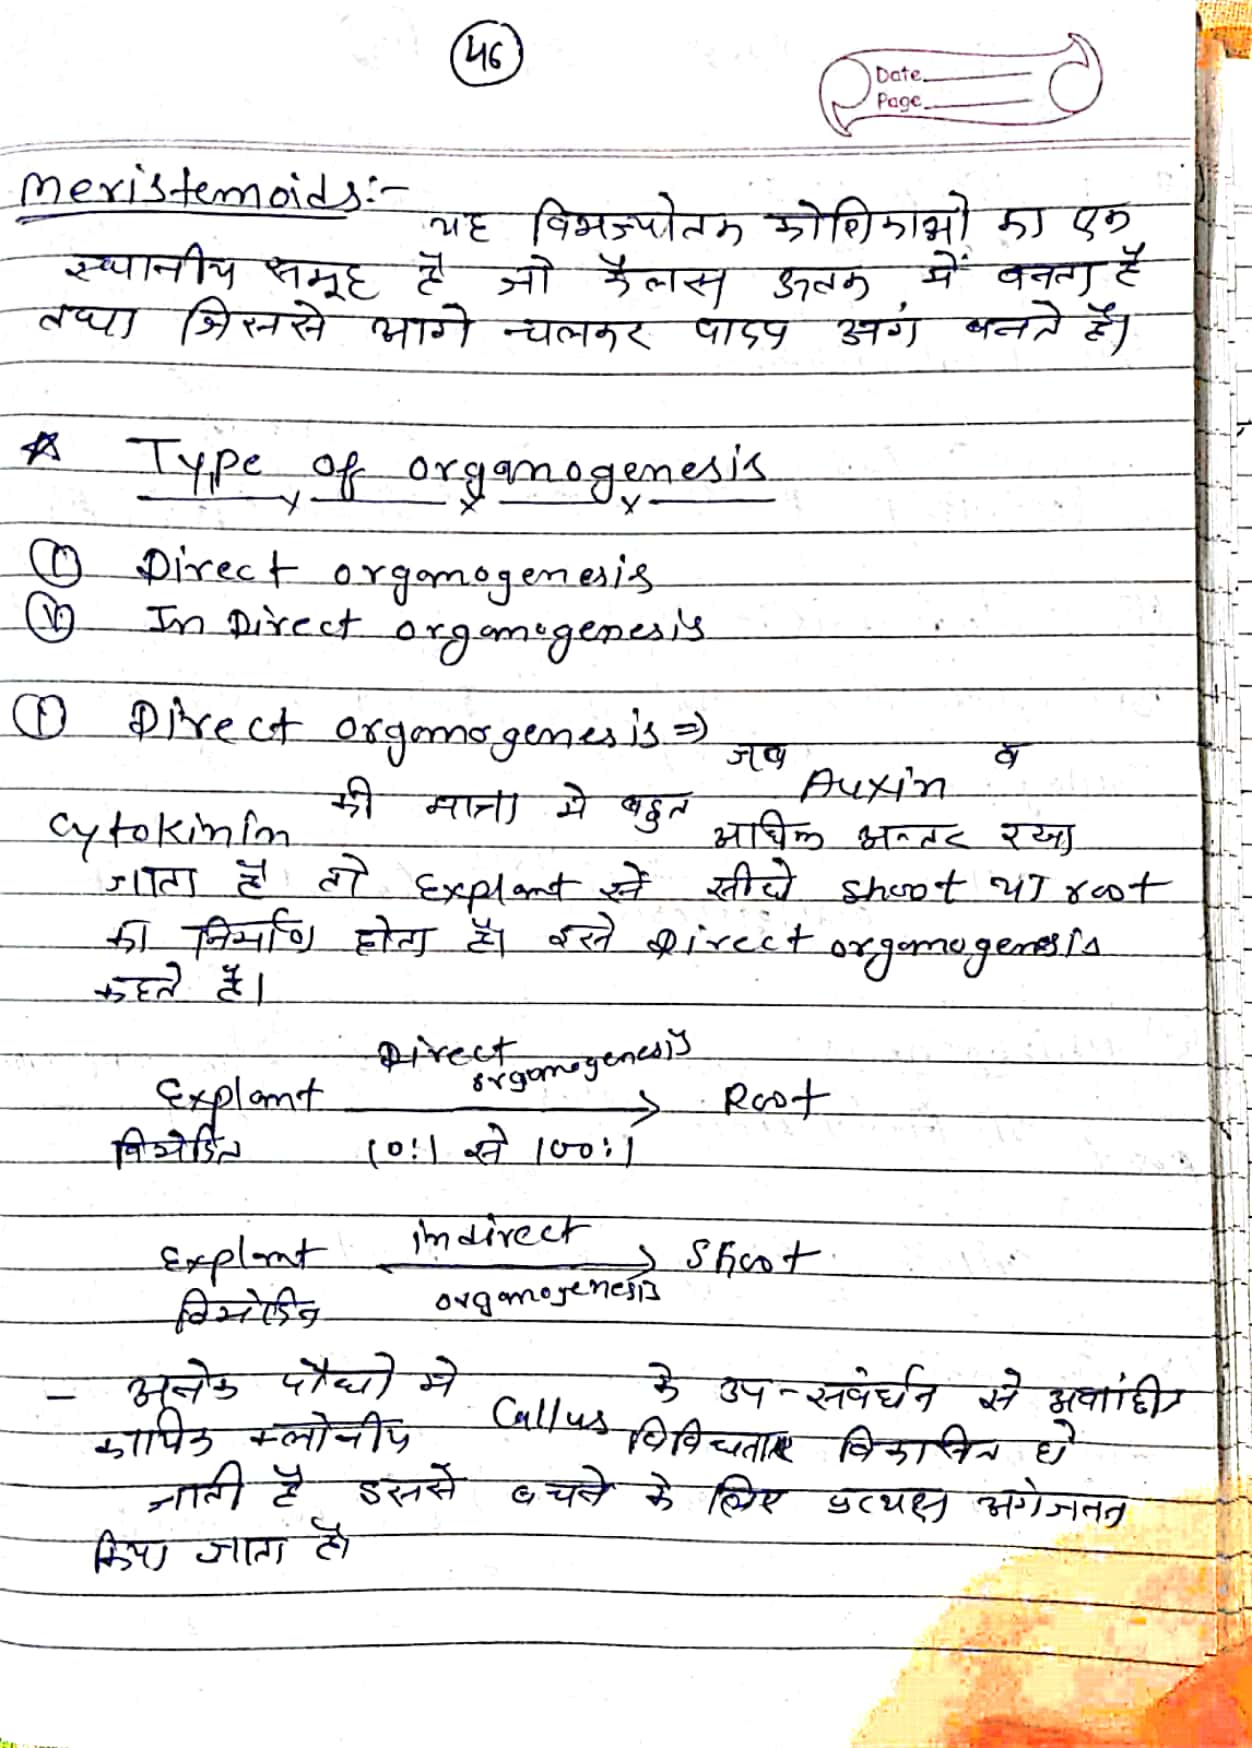 46
Date
Page
Meristemoids:-
यह विभज्योतक कोशिकाओं का एक
स्थानीय समूह है जो कैलस ऊतक में बनता है
तथा जिससे आगे चलकर पादप अंग बनते हैं।
Type of organogenesis
① Direct organogenesis
② In Direct organogenesis
① Direct organogenesis ⇒
जब Auxin व
Cytokinin की मात्रा मे बहुत अधिक अन्तर रखा
जाता है तो Explant से सीधे shoot या root
का निर्माण होता है। इसे Direct organogenesis
कहते है।
Direct organogenesis
Explant → Root
विभेदित 10:1 से 100:1
indirect
Explant → Shoot
विभेदित organogenesis
- अनेक पौधो मे Callus के उप-संवर्धन से अवांछीत
कायिक क्लोनीय विविधताए विकसित हो
जाती है इससे बचने के लिए प्रत्यक्ष अंगजनन
किया जाता है।